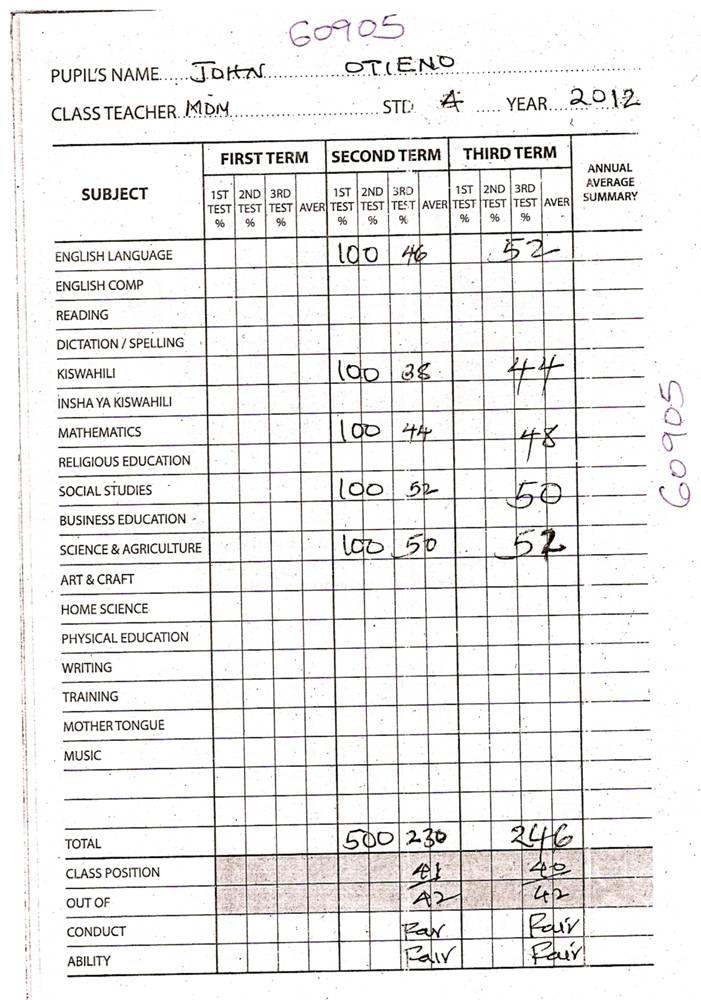 60905
PUPIL'S NAME..... JOHN OTIENO
CLASS TEACHER MDM STD 4 YEAR 2012
SUBJECT FIRST TERM SECOND TERM THIRD TERM ANNUAL AVERAGE SUMMARY
1ST TEST % 2ND TEST % 3RD TEST % AVER 1ST TEST % 2ND TEST % 3RD TEST % AVER 1ST TEST % 2ND TEST % 3RD TEST % AVER
ENGLISH LANGUAGE 100 46 52
ENGLISH COMP
READING
DICTATION / SPELLING
KISWAHILI 100 38 44
INSHA YA KISWAHILI
MATHEMATICS 100 44 48
RELIGIOUS EDUCATION
SOCIAL STUDIES 100 52 50
60905
BUSINESS EDUCATION
SCIENCE & AGRICULTURE 100 50 52
ART & CRAFT
HOME SCIENCE
PHYSICAL EDUCATION
WRITING
TRAINING
MOTHER TONGUE
MUSIC
TOTAL 500 230 246
CLASS POSITION 41 40
OUT OF 42 42
CONDUCT Fair Fair
ABILITY Fair Fair